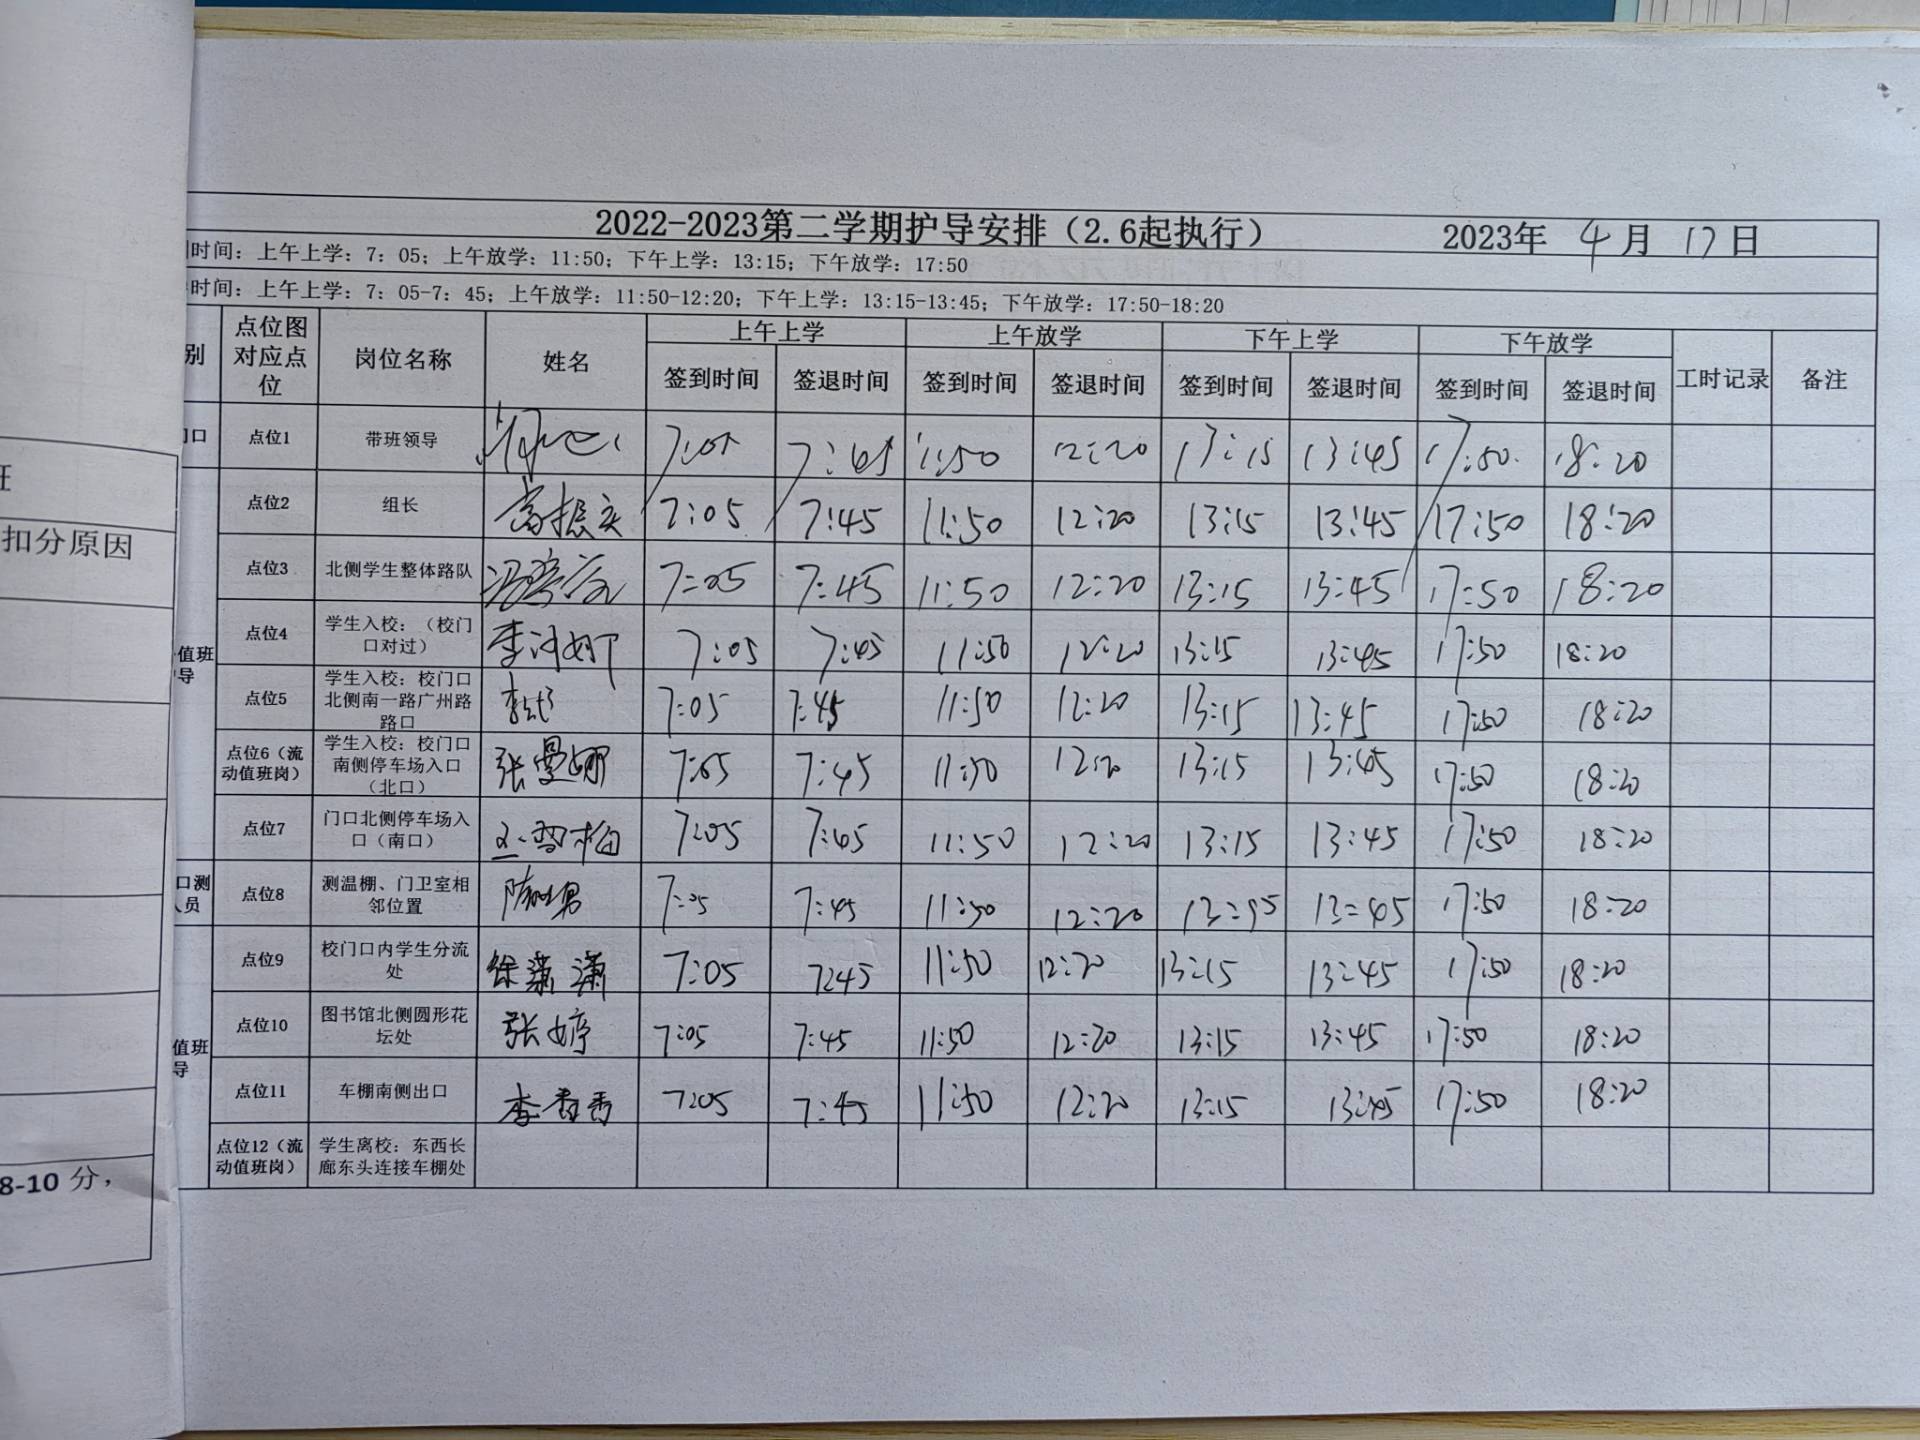 2022-2023第二学期护导安排（2.6起执行） 2023年 4 月 17 日
时间：上午上学：7：05；上午放学：11:50；下午上学：13:15；下午放学：17:50
时间：上午上学：7：05-7：45；上午放学：11:50-12:20；下午上学：13:15-13:45；下午放学：17:50-18:20
别 点位图对应点位 岗位名称 姓名 上午上学 上午放学 下午上学 下午放学 工时记录 备注
签到时间 签退时间 签到时间 签退时间 签到时间 签退时间 签到时间 签退时间
门口 点位1 带班领导 7:05 7:45 11:50 12:20 13:15 13:45 17:50 18:20
点位2 组长 高振实 7:05 7:45 11:50 12:20 13:15 13:45 17:50 18:20
点位3 北侧学生整体路队 7:05 7:45 11:50 12:20 13:15 13:45 17:50 18:20
值班导 点位4 学生入校：（校门口对过） 7:05 7:45 11:50 12:20 13:15 13:45 17:50 18:20
点位5 学生入校：校门口北侧南一路广州路路口 7:05 7:45 11:50 12:20 13:15 13:45 17:50 18:20
点位6（流动值班岗） 学生入校：校门口南侧停车场入口（北口） 张曼娜 7:05 7:45 11:50 12:20 13:15 13:45 17:50 18:20
点位7 门口北侧停车场入口（南口） 王雪梅 7:05 7:45 11:50 12:20 13:15 13:45 17:50 18:20
口测人员 点位8 测温棚、门卫室相邻位置 7:05 7:45 11:50 12:20 13:15 13:45 17:50 18:20
点位9 校门口内学生分流处 徐潇潇 7:05 7:45 11:50 12:20 13:15 13:45 17:50 18:20
值班导 点位10 图书馆北侧圆形花坛处 张婷 7:05 7:45 11:50 12:20 13:15 13:45 17:50 18:20
点位11 车棚南侧出口 李香秀 7:05 7:45 11:50 12:20 13:15 13:45 17:50 18:20
点位12（流动值班岗） 学生离校：东西长廊东头连接车棚处
班
扣分原因
8-10 分，